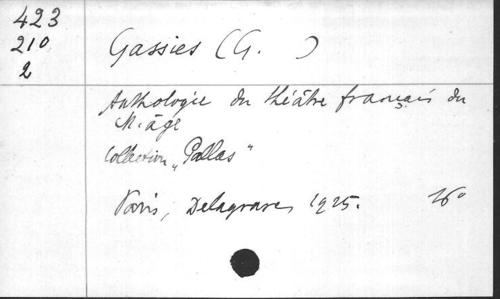 423
210
2
Gassies (G. )
Anthologie du théâtre français du
M. âge
Collection „Pallas"
Paris, Delagrave, 1925. 16°